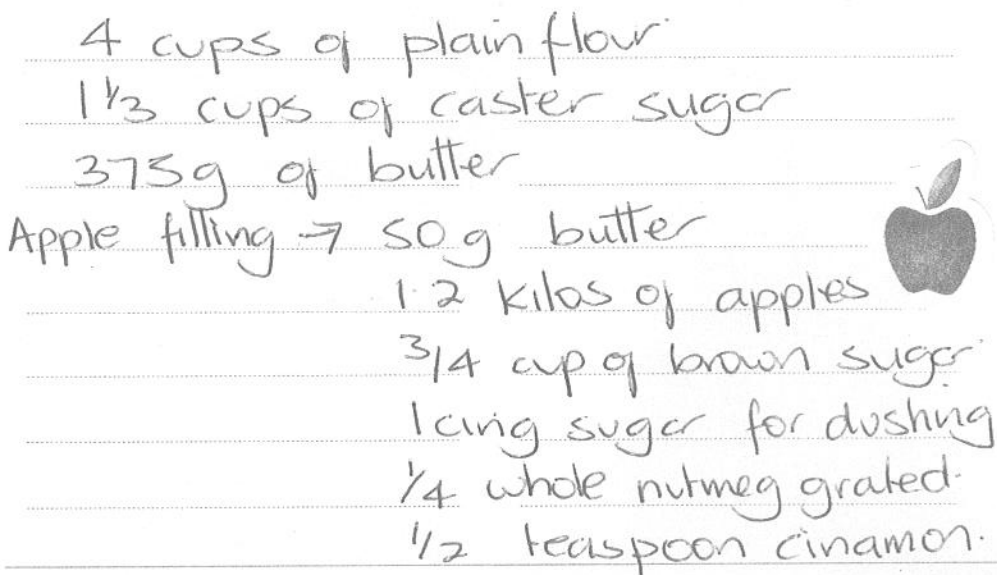 4 cups of plain flour
1 1/3 cups of caster sugar
375g of butter
Apple filling → 50g butter
1.2 kilos of apples
3/4 cup of brown sugar
Icing sugar for dusting
1/4 whole nutmeg grated.
1/2 teaspoon cinamon.